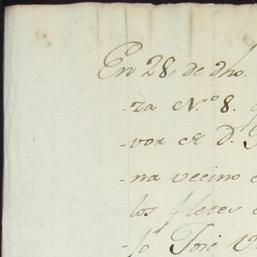 En 28, de dho.
-za N.º 8.
vor de D.
-na vecino
los fletes
José